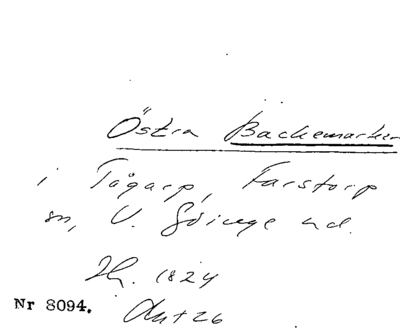 Östra Backemarken
i Tågarp, Farstorp
sn, V. Göinge hd.
Lh. 1824
Nr 8094.
Akt 26